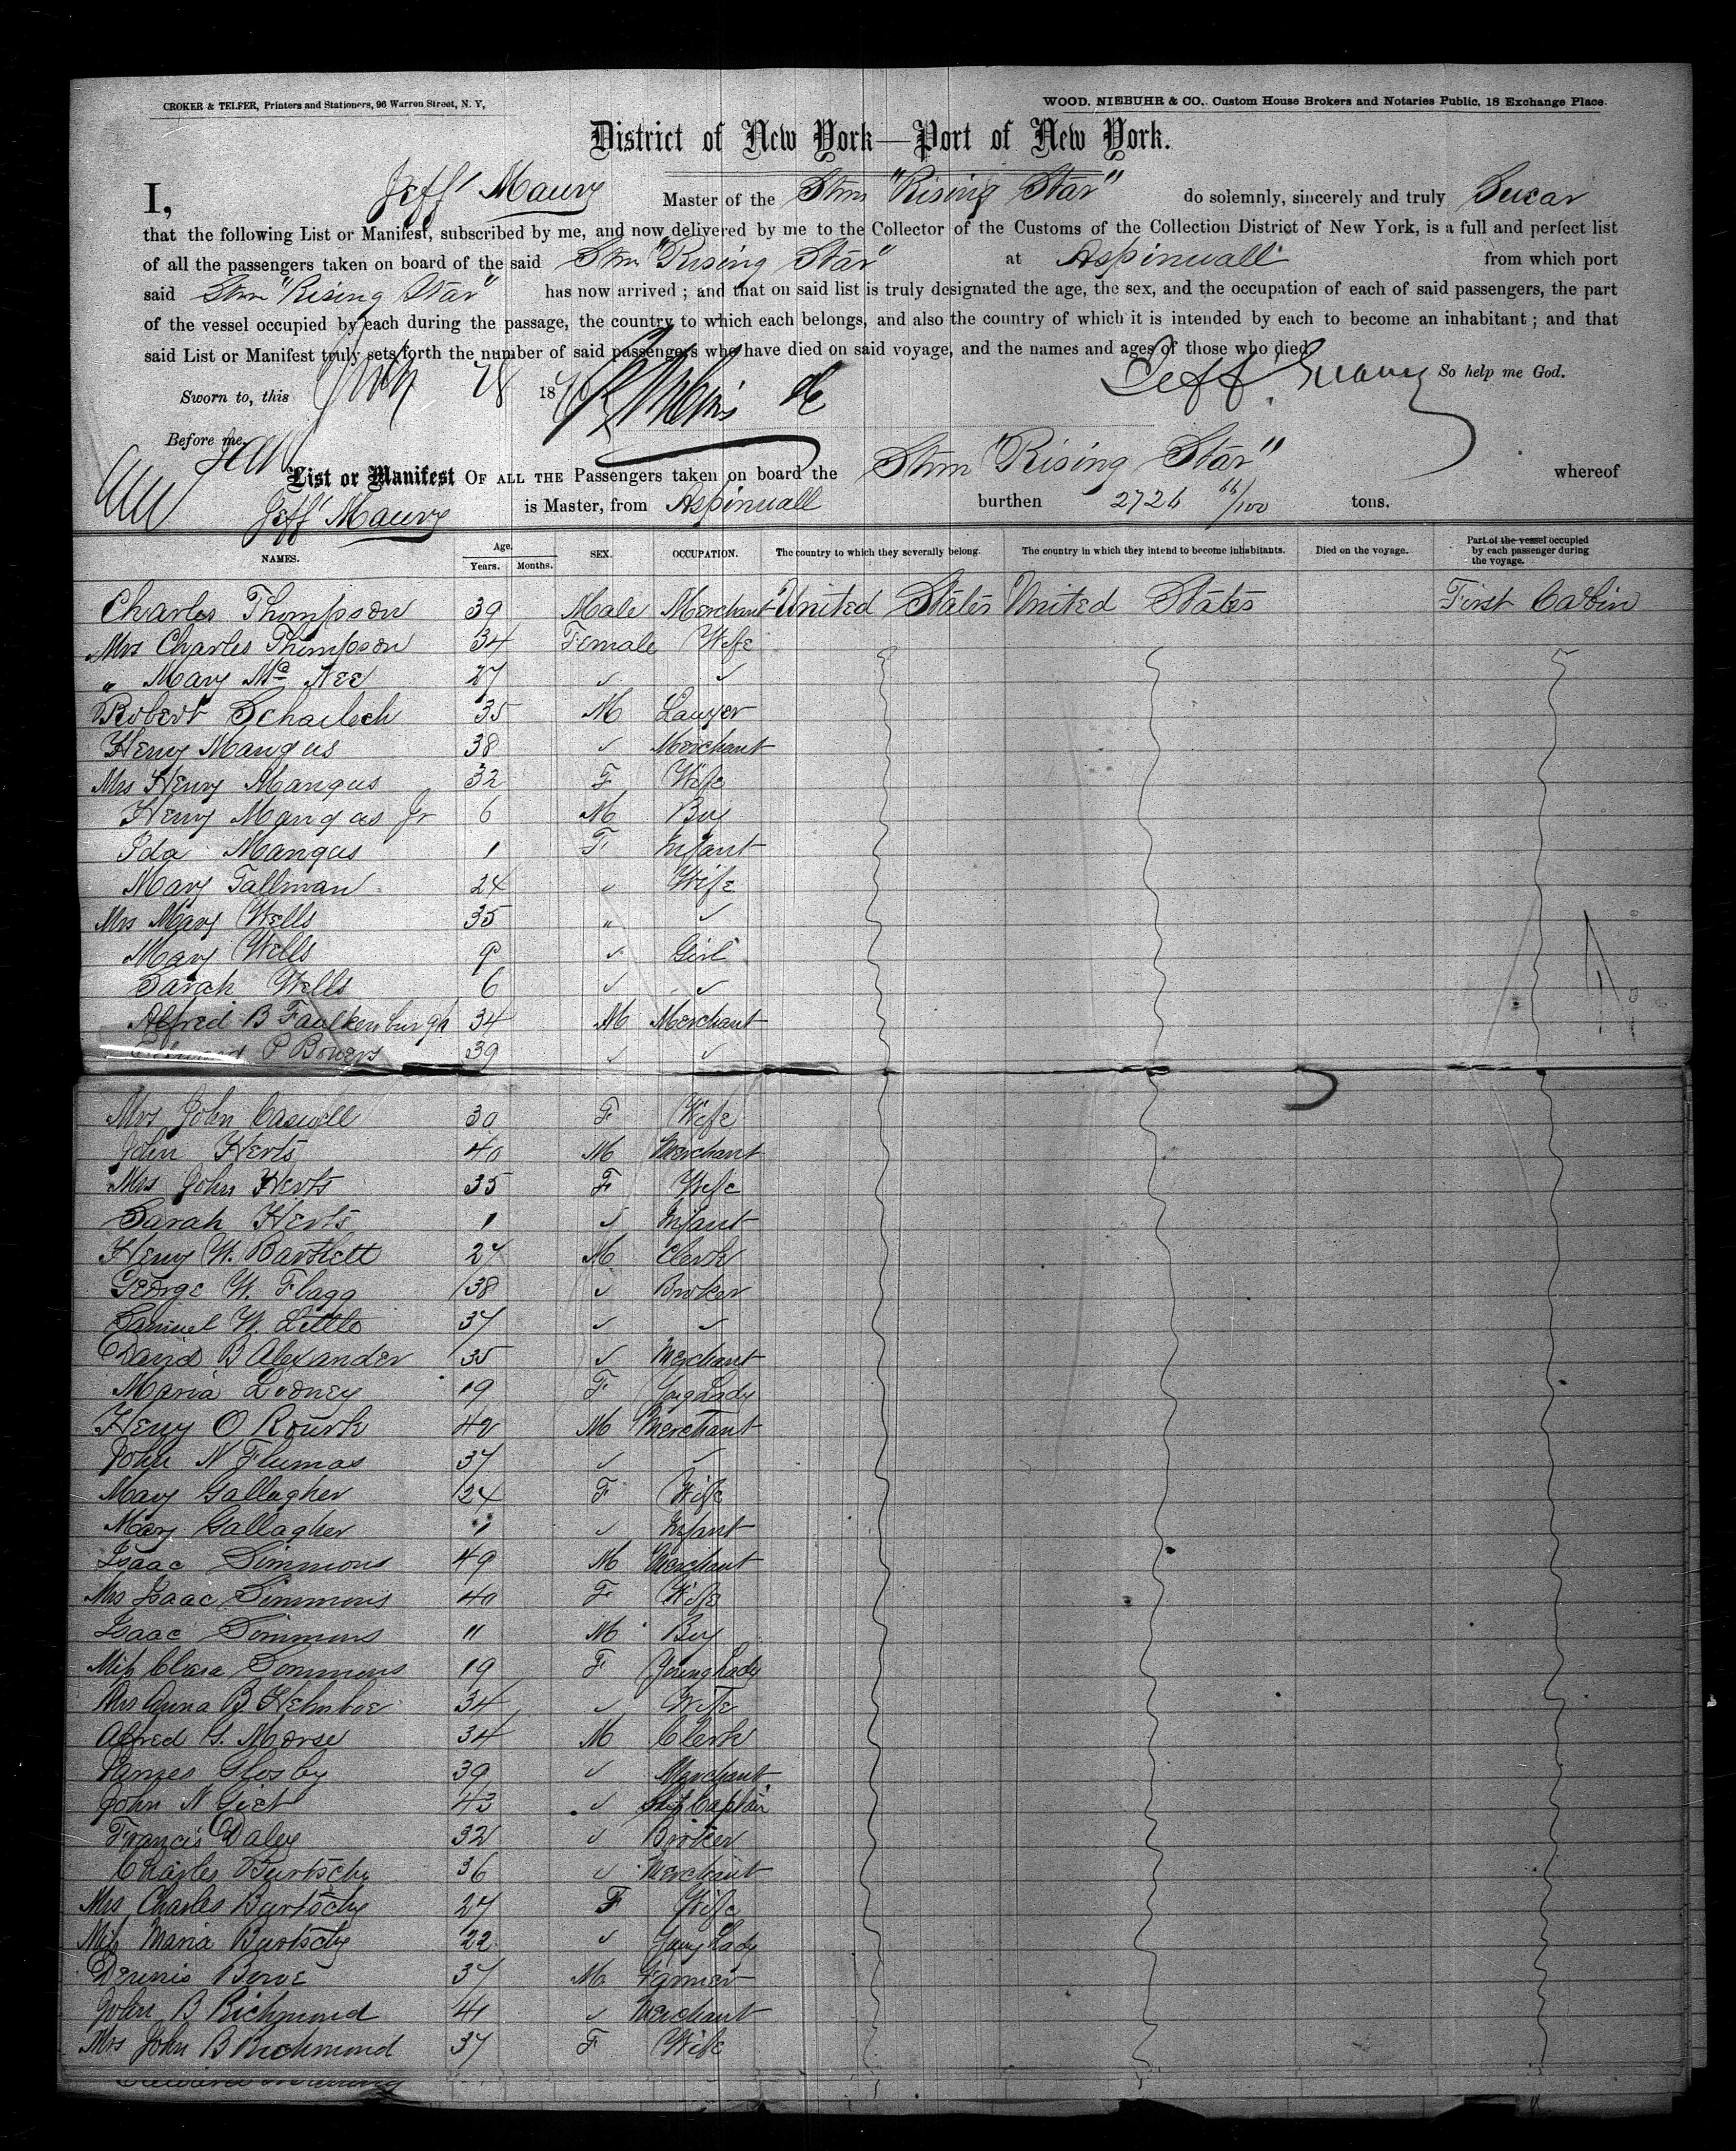 CROKER & TELFER, Printers and Stationers, 96 Warren Street, N. Y,
WOOD, NIEBUHR & CO., Custom House Brokers and Notaries Public, 18 Exchange Place.
District of New York—Port of New York.
I, Jeff Maury Master of the Stmr "Rising Star" do solemnly, sincerely and truly Swear
that the following List or Manifest, subscribed by me, and now delivered by me to the Collector of the Customs of the Collection District of New York, is a full and perfect list
of all the passengers taken on board of the said Stmr "Rising Star" at Aspinwall from which port
said Stmr "Rising Star" has now arrived ; and that on said list is truly designated the age, the sex, and the occupation of each of said passengers, the part
of the vessel occupied by each during the passage, the country to which each belongs, and also the country of which it is intended by each to become an inhabitant ; and that
said List or Manifest truly sets forth the number of said passengers who have died on said voyage, and the names and ages of those who died.
Jeff Maury So help me God.
Sworn to, this 28 18
Before me,
List or Manifest OF ALL THE Passengers taken on board the Stmr "Rising Star" whereof
Jeff Maury is Master, from Aspinwall burthen 2726 66/100 tons.
NAMES. Age. Years. Months. SEX. OCCUPATION. The country to which they severally belong. The country in which they intend to become inhabitants. Died on the voyage. Part of the vessel occupied by each passenger during the voyage.
Charles Thompson 39 Male Merchant United States United States First Cabin
Mrs Charles Thompson 34 Female Wife
" Mary Mc Nee 27 ✓ ✓
Robert Schailech 35 M Lawyer
Henry Mangus 38 ✓ Merchant
Mrs Henry Mangus 32 F Wife
Henry Mangus Jr 6 M Boy
Ida Mangus 1 F Infant
Mary Tallman 24 ✓ Wife
Mrs Mary Wells 35 " ✓
Mary Wells 9 ✓ Girl
Sarah Wells 6 ✓ ✓
Alfred B Faulkenburgh 34 M Merchant
P Bowers 39 ✓ ✓
Mrs John Caswell 30 F Wife
John Herts 40 M Merchant
Mrs John Herts 35 F Wife
Sarah Herts 1 ✓ Infant
Henry W. Bartlett 27 M Clerk
George W. Flagg 38 ✓ Broker
Samuel W. Little 37 ✓ ✓
David B Alexander 35 ✓ Merchant
Maria Looney 19 F Yong Lady
Henry O Rourk 40 M Merchant
John N Flumas 37 ✓ ✓
Mary Gallagher 24 F Wife
Mary Gallagher 1 ✓ Infant
Isaac Simmons 49 M Merchant
Mrs Isaac Simmons 40 F Wife
Isaac Simmons 11 M Boy
Miss Clara Simmons 19 F Young Lady
Mrs Anna B. Helmboe 34 ✓ Wife
Alfred G. Morse 34 M Clerk
James Glosby 39 ✓ Merchant
John N Giet 43 ✓ Ship Captain
Francis Daley 32 ✓ Broker
Charles Burtschy 36 ✓ Merchant
Mrs Charles Burtschy 27 F Wife
Miss Maria Burtschy 22 ✓ Young Lady
Dennis Bowe 37 M Farmer
John B Richmond 41 ✓ Merchant
Mrs John B Richmond 37 F Wife